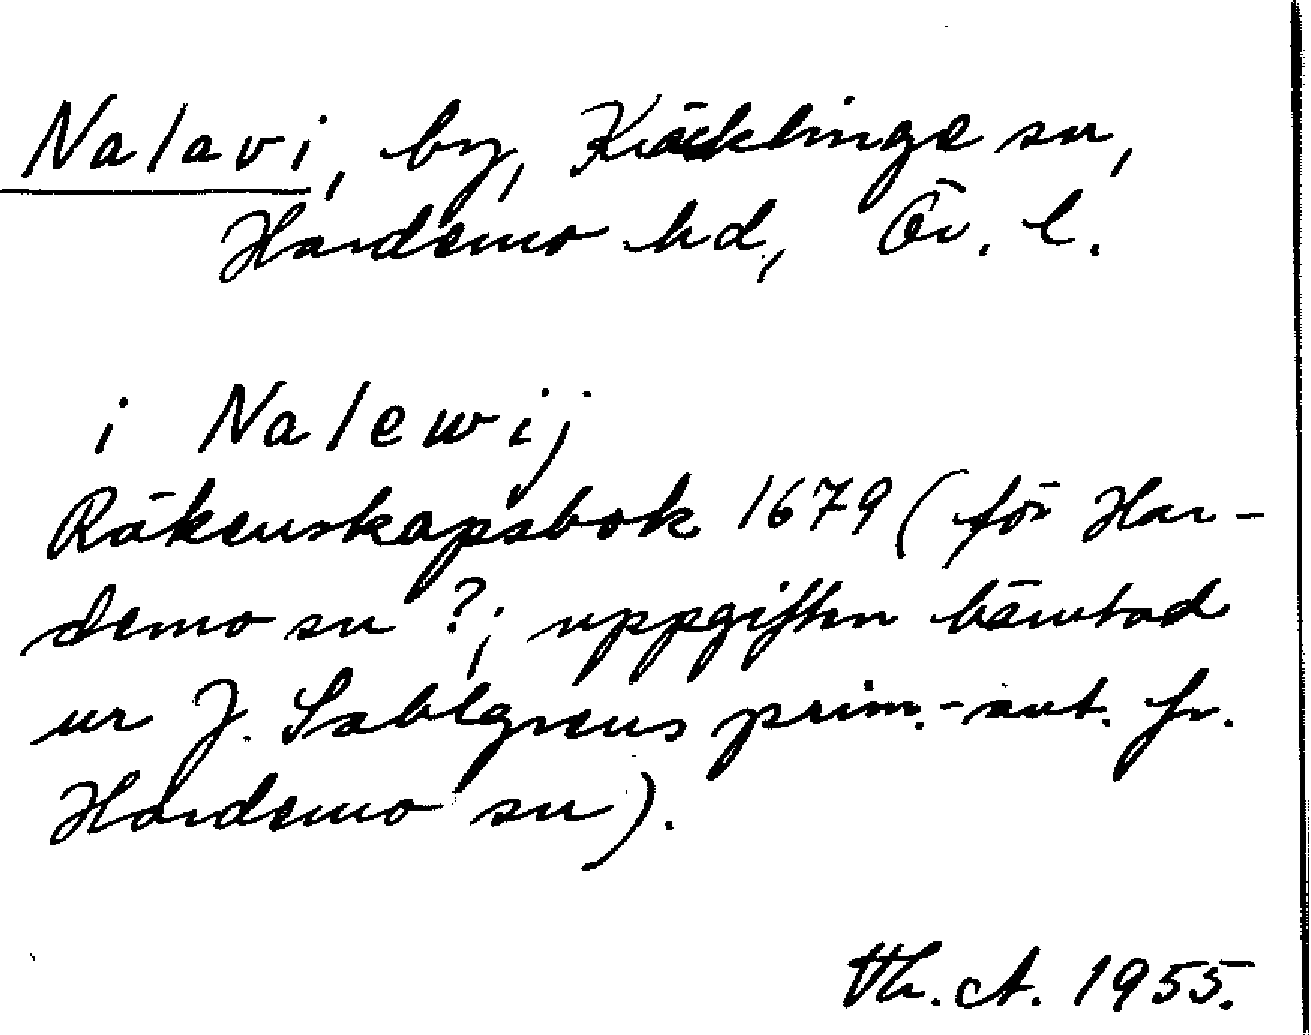 Nalavi, by, Kräcklinge sn,
Hardemo hd, Ör. l.
i Nalewij
Räkenskapsbok 1679 (för Har-
demo sn ?; uppgiften hämtad
ur J. Sahlgrens prim.-ant. fr.
Hardemo sn).
Th. A. 1955.